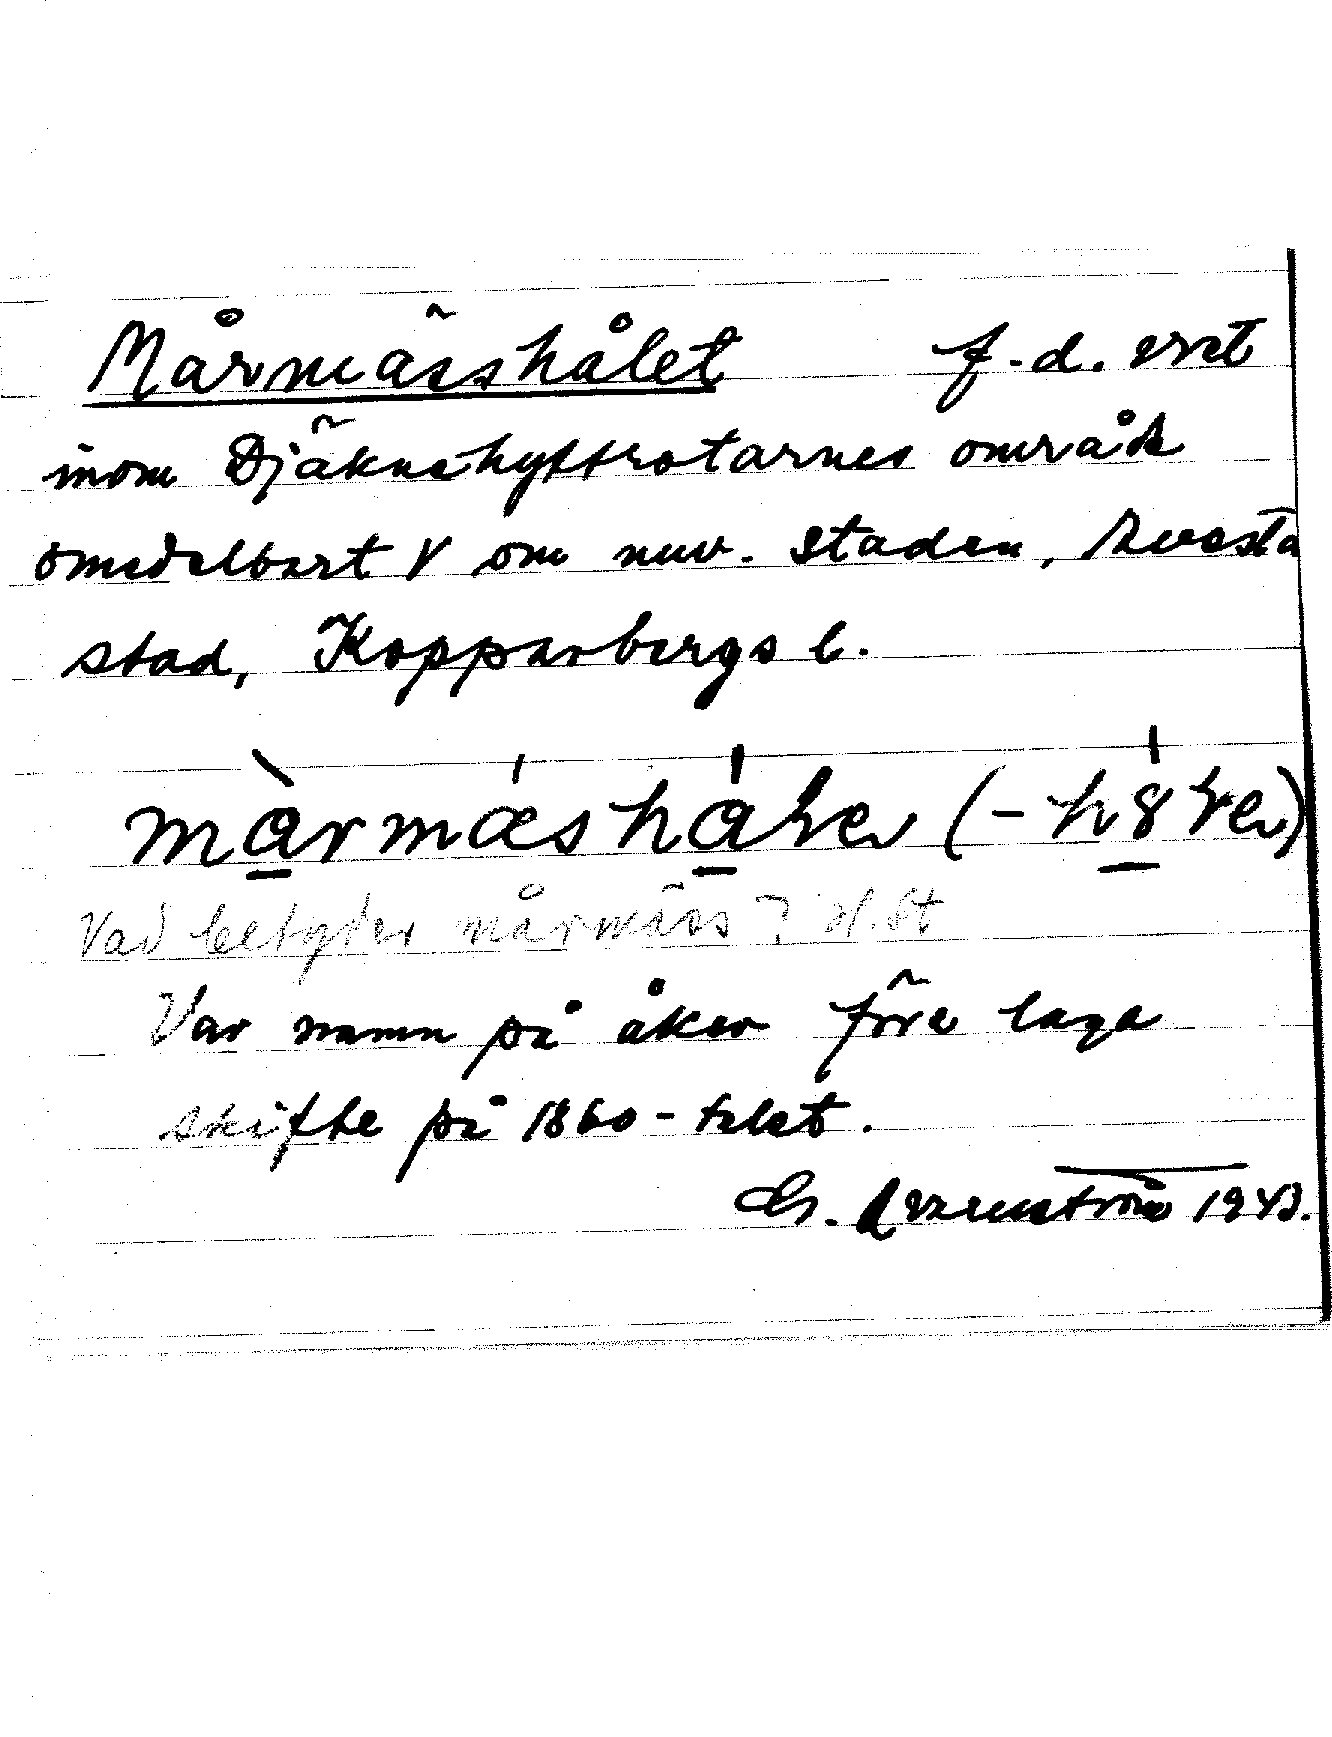 Mårmässhålet f.d. vret
inom Djäknehyttrotarnes område
omedelbart V om nuv. staden, Avesta
stad, Kopparbergs l.
(-h
Vad betyder mårmäss? H. St
Var namn på åker före laga
skifte på 1860-talet.
1943.